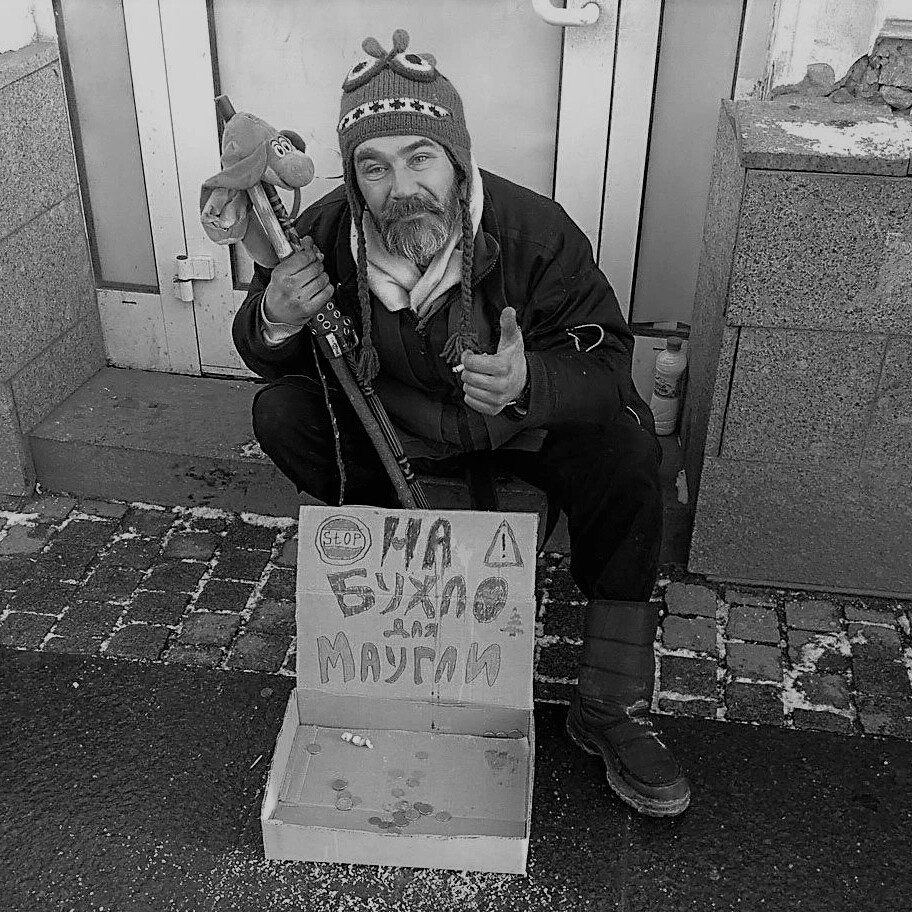 STOP
НА
БУХЛО
для
МАУГЛИ